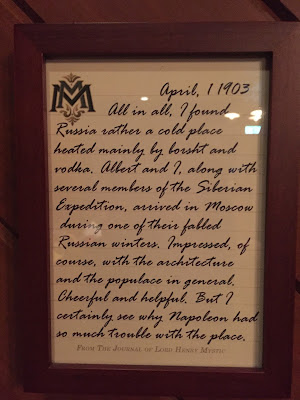 MM
April, 1 1903
All in all, I found
Russia rather a cold place
heated mainly by borsht and
vodka. Albert and I, along with
several members of the Siberian
Expedition, arrived in Moscow
during one of their fabled
Russian winters. Impressed, of
course, with the architecture
and the populace in general.
Cheerful and helpful. But I
certainly see why Napoleon had
so much trouble with the place.
From The Journal of Lord Henry Mystic